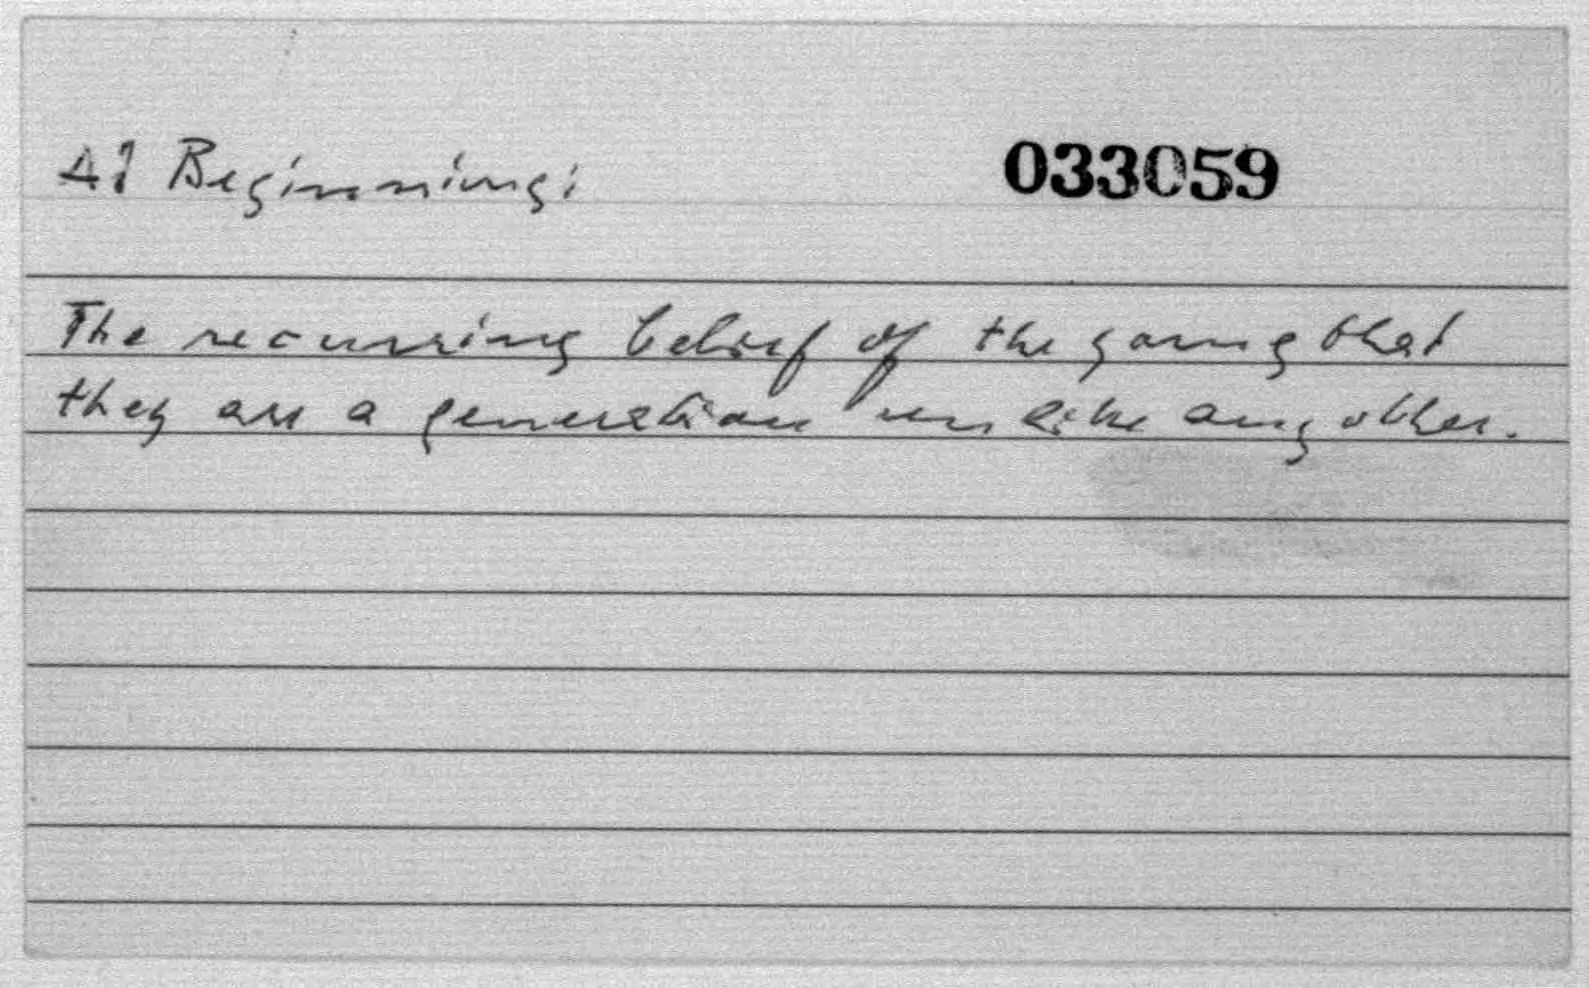 Beginnings 033059
The recurring belief of the young that
they are a generation unlike any other.